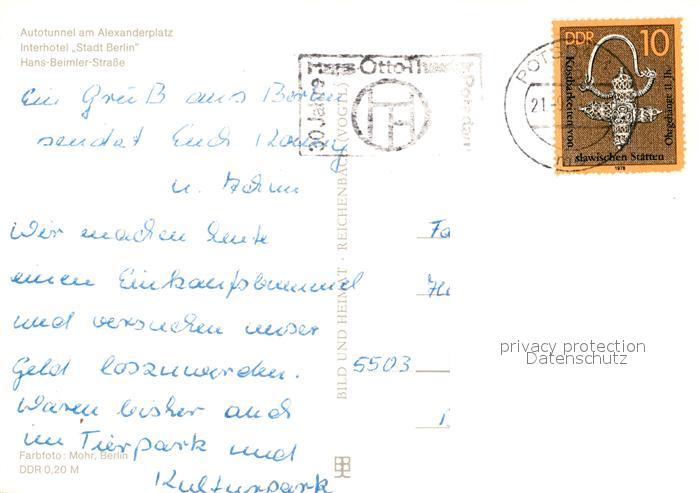 Autotunnel am Alexanderplatz
Interhotel „Stadt Berlin"
Hans-Beimler-Straße
Ein Gruß aus Berlin
sendet Euch
u.
Wir machen heute
einen Einkaufsbummel
und versuchen unser
Geld loszuwerden.
Waren bisher auch
im Tierpark und
Kulturpark
Farbfoto: Mohr, Berlin
DDR 0,20 M
BILD UND HEIMAT · REICHENBACH (VOGTL)
30 Jahre
Hans-Otto-Theater
Potsdam
HT
POTS
21
DDR 10
Kostbarkeiten von
slawischen Stätten
Ohrgehänge 11. Jh.
1978
Fa
5503
privacy protection
Datenschutz